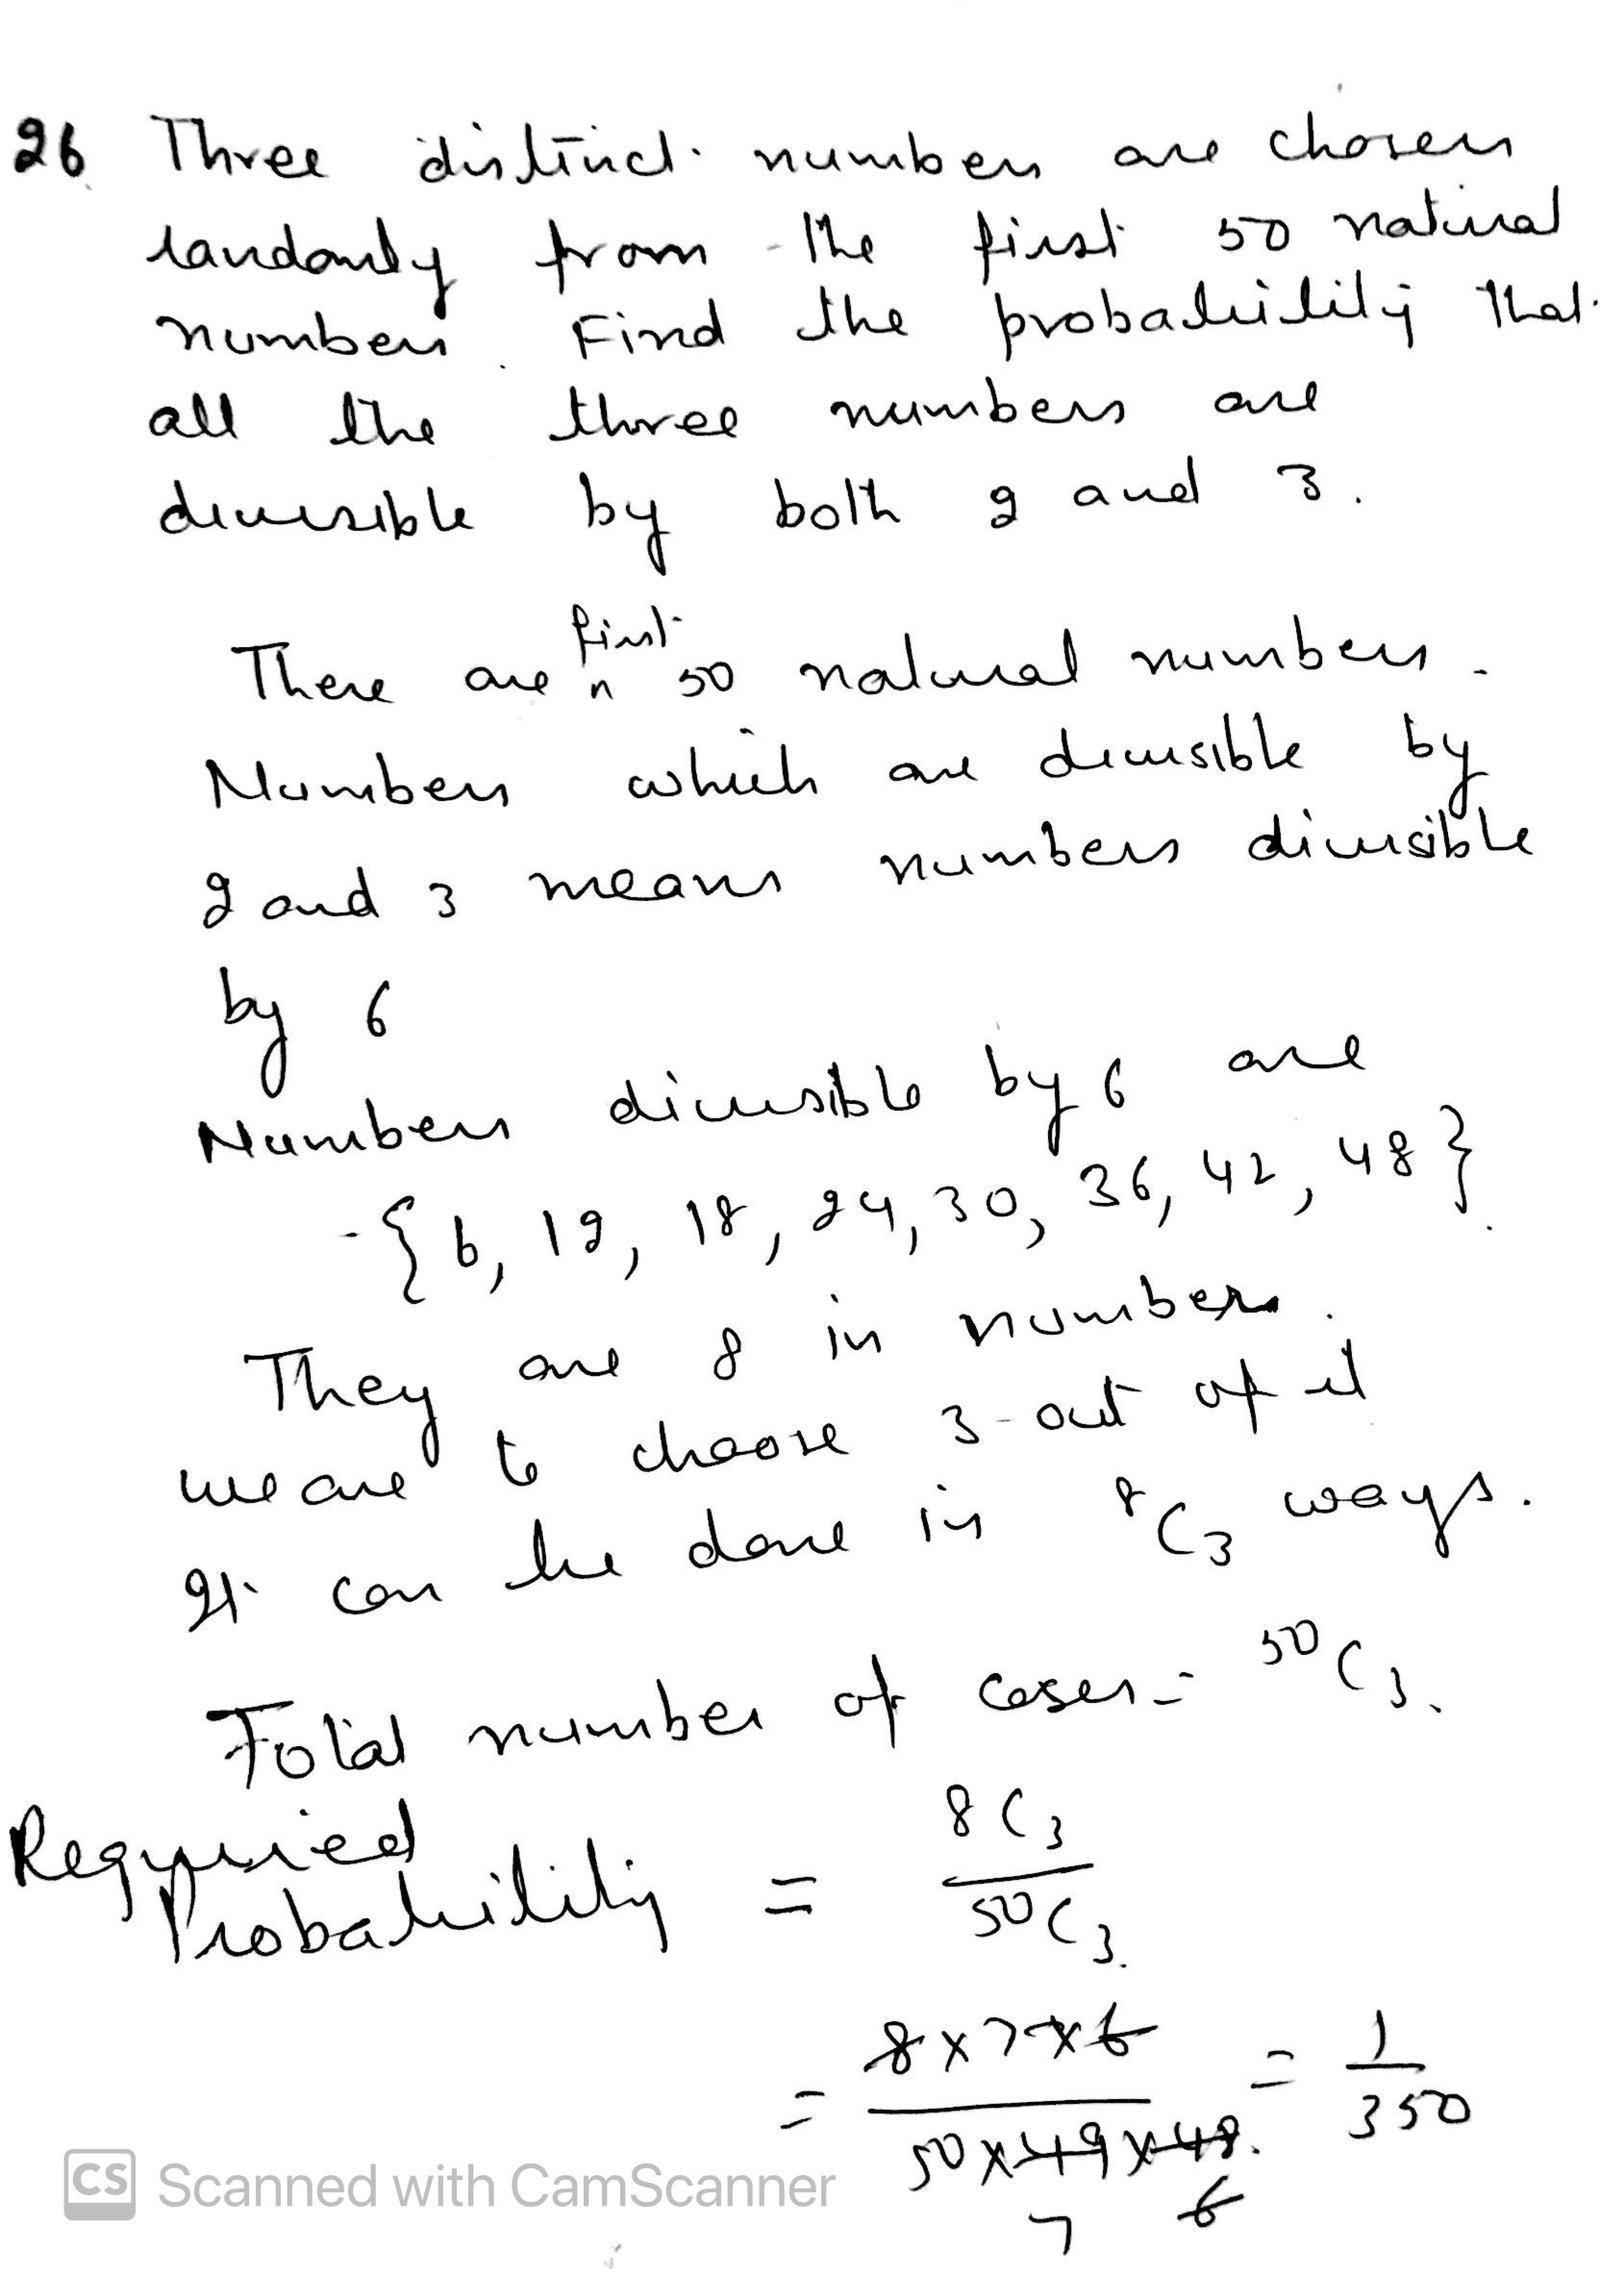 26. Three distinct numbers are chosen
randomly from the first 50 natural
numbers. Find the probability that
all the three numbers are
divisible by both 2 and 3.
first
There are 50 natural numbers.
Numbers which are divisible by
2 and 3 means numbers divisible
by 6
Numbers divisible by 6 are
- {6, 12, 18, 24, 30, 36, 42, 48}.
They are 8 in numbers.
we are to choose 3 out of it
It can be done in ⁸C₃ ways.
Total number of cases = ⁵⁰C₃.
Required
Probability = 8C₃ / 50C₃.
= 8×7×6 / 50×49×48 = 1/350
7 6
CS Scanned with CamScanner